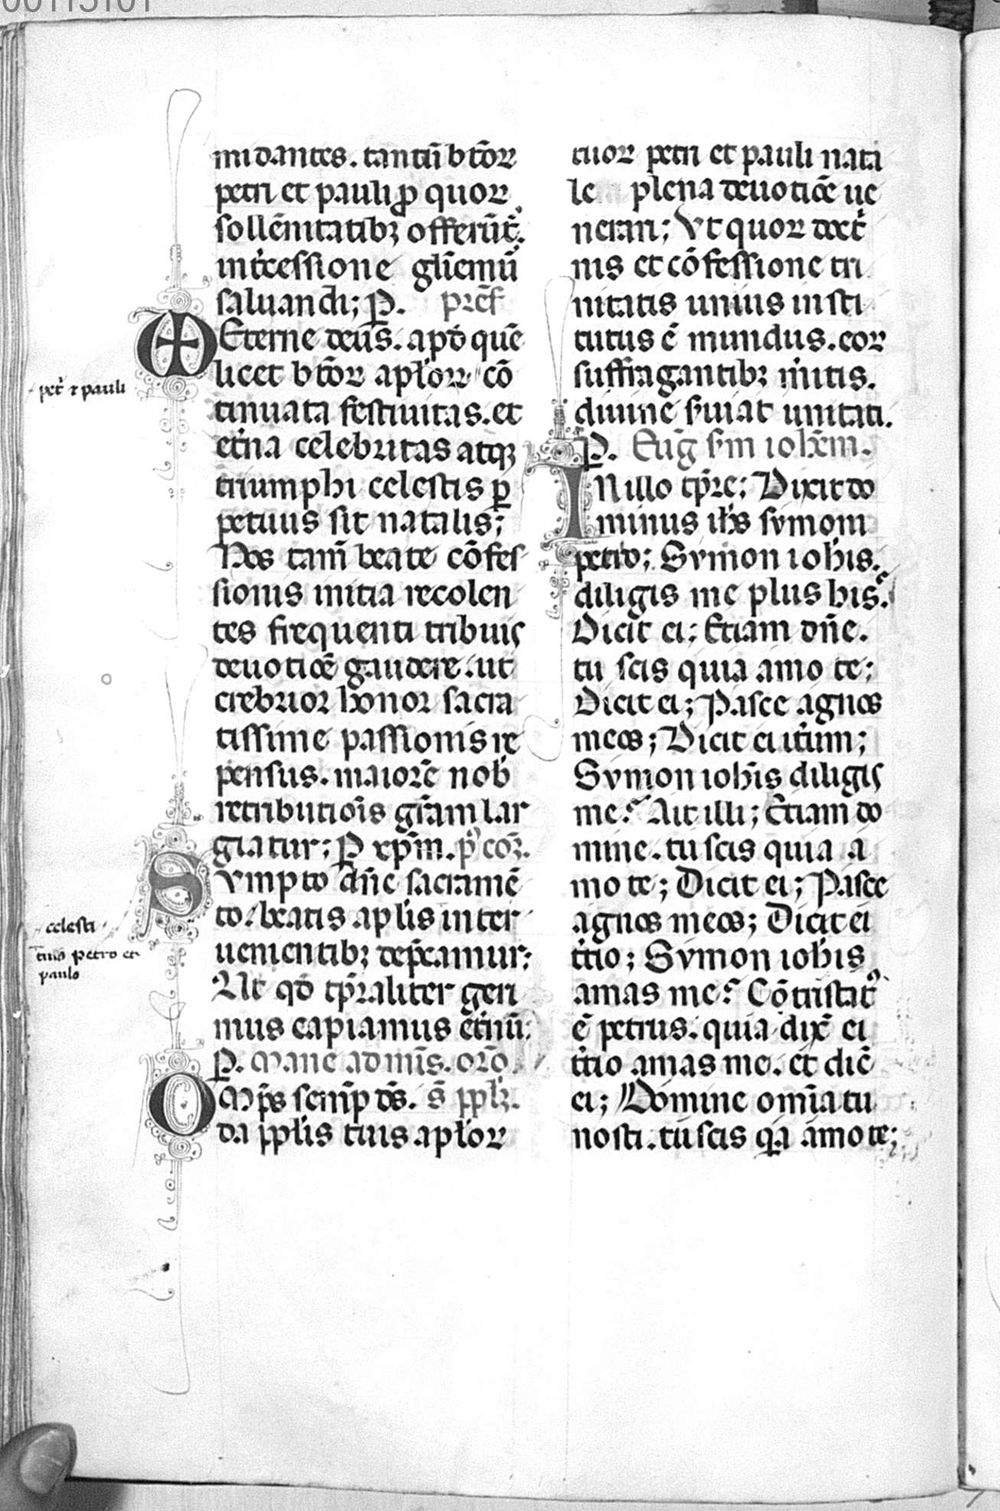 00113101
midantes. tantū btōꝝ
petri et pauli ꝓ quoꝝ
sollēnitatibꝫ offerūt᷑.
int̄cessione gliēmū
saluandi; P. pręf
Eterne deus. apd̄ quē
licet btōꝝ aplōꝝ cō
petꝰ ⁊ pauli
tinuata festiuitas. et
et̄na celebritas atqꝫ
triumphi celestis ꝑ
petuus sit natalis;
Nos tam̄ beate cōfes
sionis initia recolen
tes frequenti tribuis
deuotiōe gaudere. ut
crebrior honor sacra
tissime passionis re
pensus. maiorē nob̄
retributiōis gr̄am lar
giatur; P xp̄m. p̄ coꝝ.
Sumpto dn̄e sacramē
to. beatis apl̄is inter
celesti
uenientibꝫ dep̄camur;
tuo petro et
paulo
Ut qd̄ tp̄raliter geri
mus capiamus et̄nū;
P. Mane ad mis̄. orō.
Omp̄s semp̄ ds̄. s̄ ppl̄.
da ppl̄is tuis aplōꝝ
tuoꝝ petri et pauli nata
le plena deuotiōe ue
nerari; Ut quoꝝ doct᷑
nis et cōfessione tri
nitatis unius insti
tutus ē mundus. eoꝝ
suffragantibꝫ mitis.
diuine s̄uiat unitati.
P. Eūg s̄m iohēm.
In illo tp̄re; Dixit do
minus ihs̄ symoni
petro; Symon ioh̄is.
diligis me plus his?
Dicit ei; Etiam dn̄e.
tu scis quia amo te;
Dicit ei; Pasce agnos
meos; Dicit ei it̄um;
Symon ioh̄is diligis
me? Ait illi; Etiam do
mine. tu scis quia a
mo te; Dicit ei; Pasce
agnos meos; Dicit ei
t̄tio; Symon ioh̄is
amas me? Cōtristat᷑
ē petrus. quia dix̄ ei
t̄tio amas me. et dic̄
ei; Domine om̄ia tu
nosti. tu scis qa amo te;